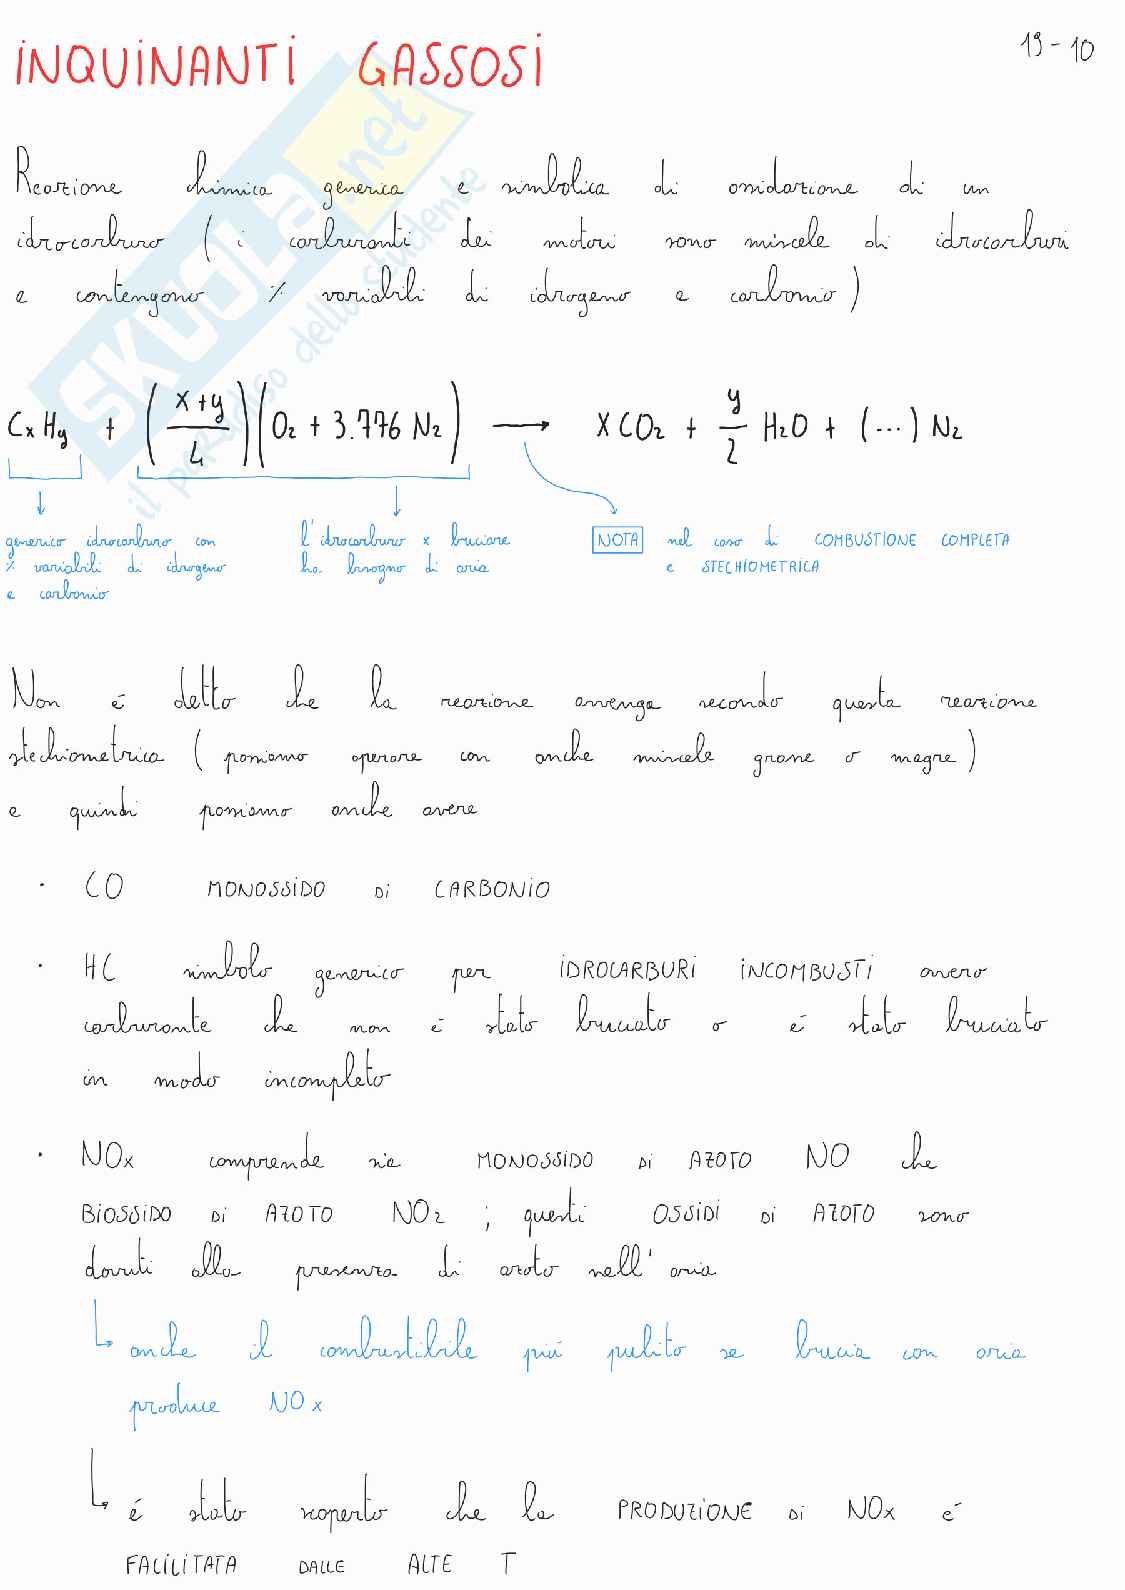 INQUINANTI GASSOSI
19-10
Reazione chimica generica e simbolica di ossidazione di un
idrocarburo (i carburanti dei motori sono miscele di idrocarburi
e contengono % variabili di idrogeno e carbonio)
CxHy + (x+y/4)(O2 + 3.776 N2) → XCO2 + y/2 H2O + (...) N2
generico idrocarburo con
% variabili di idrogeno
e carbonio
l'idrocarburo x bruciare
ha bisogno di aria
NOTA nel caso di COMBUSTIONE COMPLETA
e STECHIOMETRICA
Non é detto che la reazione avvenga secondo questa reazione
stechiometrica (possiamo operare con anche miscele grasse o magre)
e quindi possiamo anche avere
· CO MONOSSIDO DI CARBONIO
· HC simbolo generico per IDROCARBURI INCOMBUSTI ovvero
carburante che non é stato bruciato o é stato bruciato
in modo incompleto
· NOx comprende sia MONOSSIDO DI AZOTO NO che
BIOSSIDO DI AZOTO NO2 ; questi OSSIDI DI AZOTO sono
dovuti alla presenza di azoto nell'aria
↳ anche il combustibile piú pulito se brucia con aria
produce NOx
↳ é stato scoperto che la PRODUZIONE DI NOx é
FACILITATA DALLE ALTE T
SKUOLA.net
il paradiso dello studente